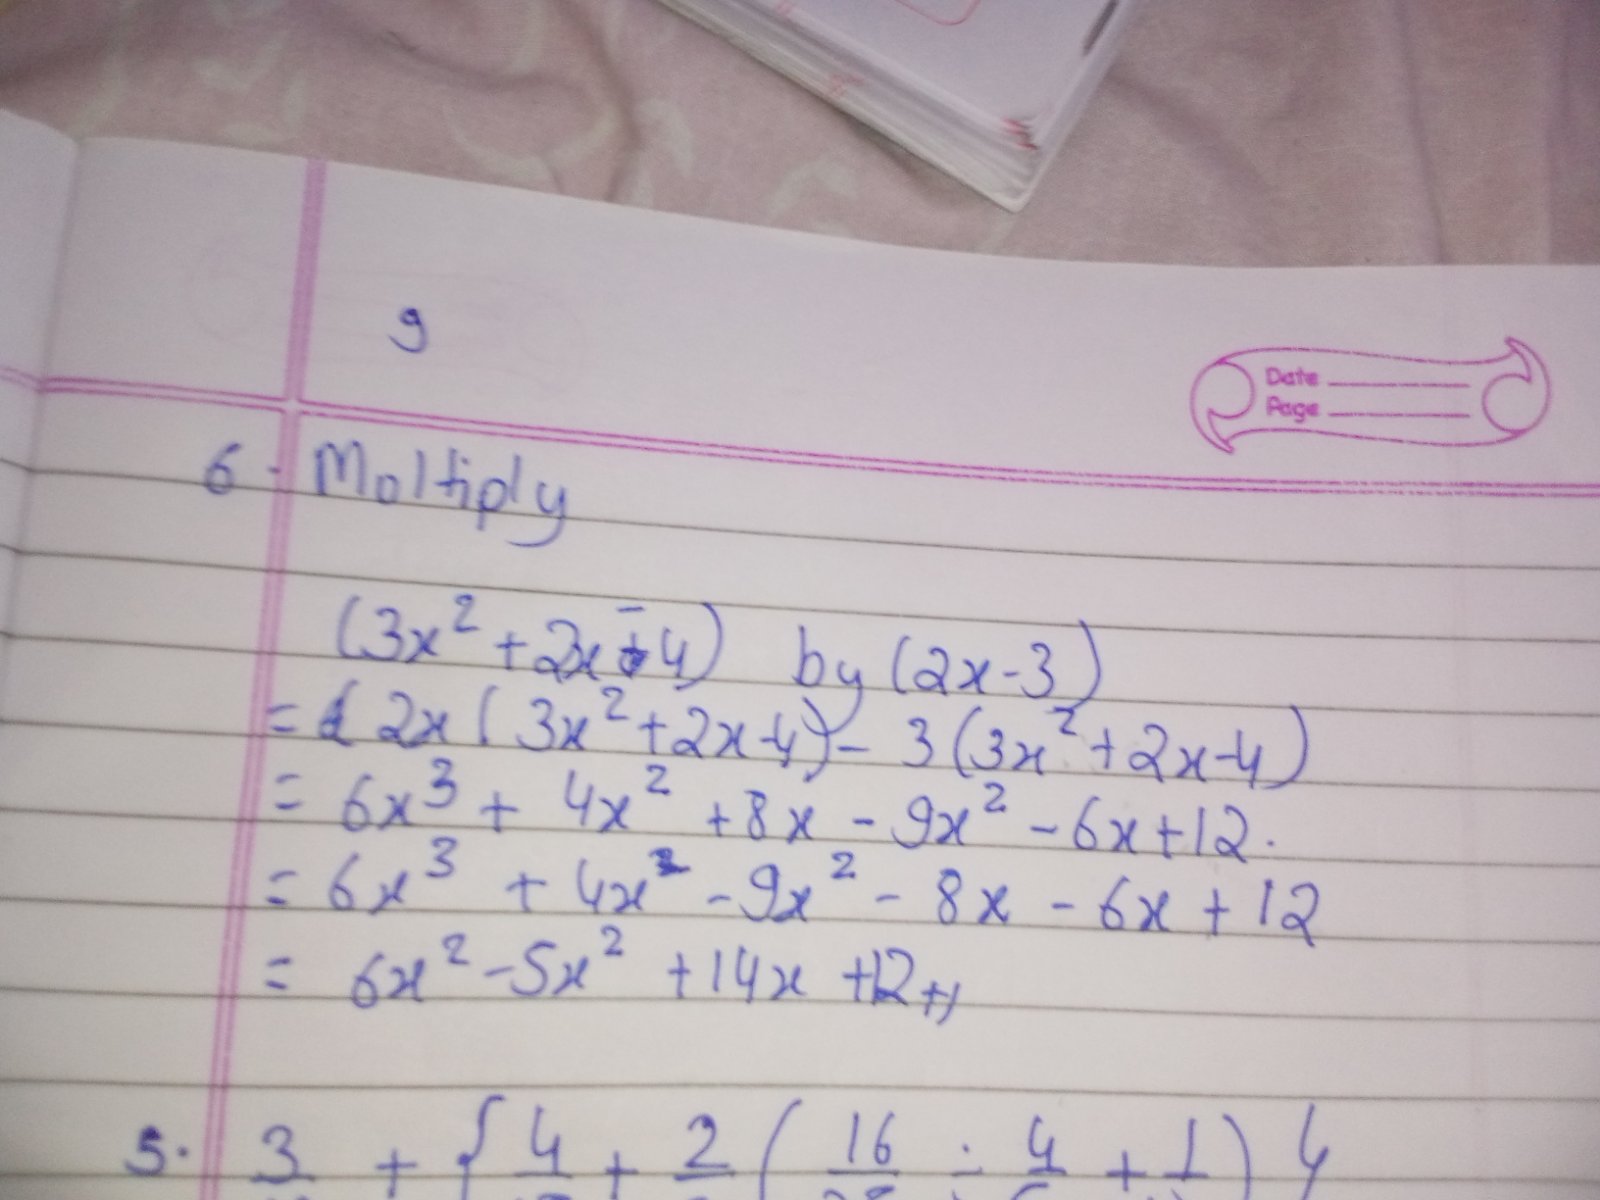 9
Date
Page
6. Moltiply
(3x² + 2x - 4) by (2x-3)
= 2x (3x² + 2x - 4) - 3 (3x² + 2x - 4)
= 6x³ + 4x² + 8x - 9x² - 6x + 12.
= 6x³ + 4x² - 9x² - 8x - 6x + 12
= 6x² - 5x² + 14x + 12
5. 3 + { 4 + 2 ( 16 ÷ 4 + 1 )